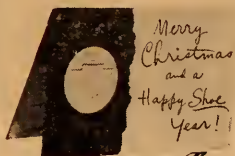 Merry
Christmas
and a
Happy Shoe
Year!